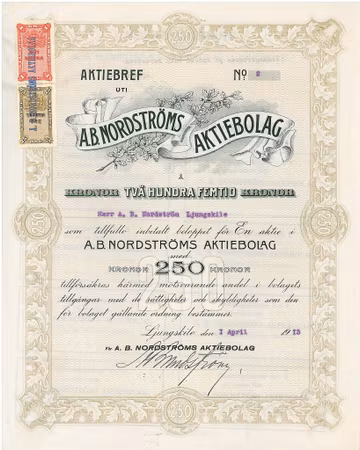 250
AKTIEBREF No 2
UTI
A.B. NORDSTRÖMS AKTIEBOLAG
Å
KRONOR TVÅ HUNDRA FEMTIO KRONOR
Herr A. B. Nordström Ljungskile
som tillfullo inbetalt beloppet för En aktie i
A.B. NORDSTRÖMS AKTIEBOLAG
med
KRONOR 250 KRONOR
tillförsäkres härmed motsvarande andel i bolagets
tillgångar med de rättigheter och skyldigheter som den
för bolaget gällande ordning bestämmer.
Ljungskile den 1 April 1913
För A. B. NORDSTRÖMS AKTIEBOLAG
A B Nordström
250
250
250